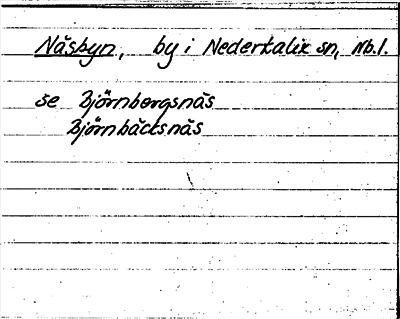 Näsbyn, by i Nederkalix sn, Nb.l.
se Björnbergsnäs
Björnbäcksnäs